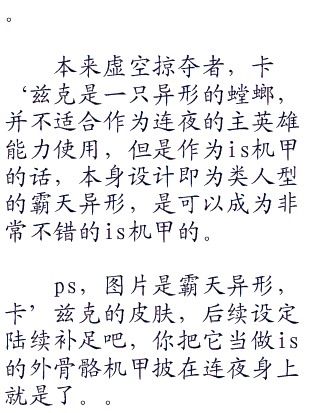 。
本来虚空掠夺者，卡
‘兹克是一只异形的螳螂，
并不适合作为连夜的主英雄
能力使用，但是作为is机甲
的话，本身设计即为类人型
的霸天异形，是可以成为非
常不错的is机甲的。
ps，图片是霸天异形，
卡’兹克的皮肤，后续设定
陆续补足吧，你把它当做is
的外骨骼机甲披在连夜身上
就是了。。